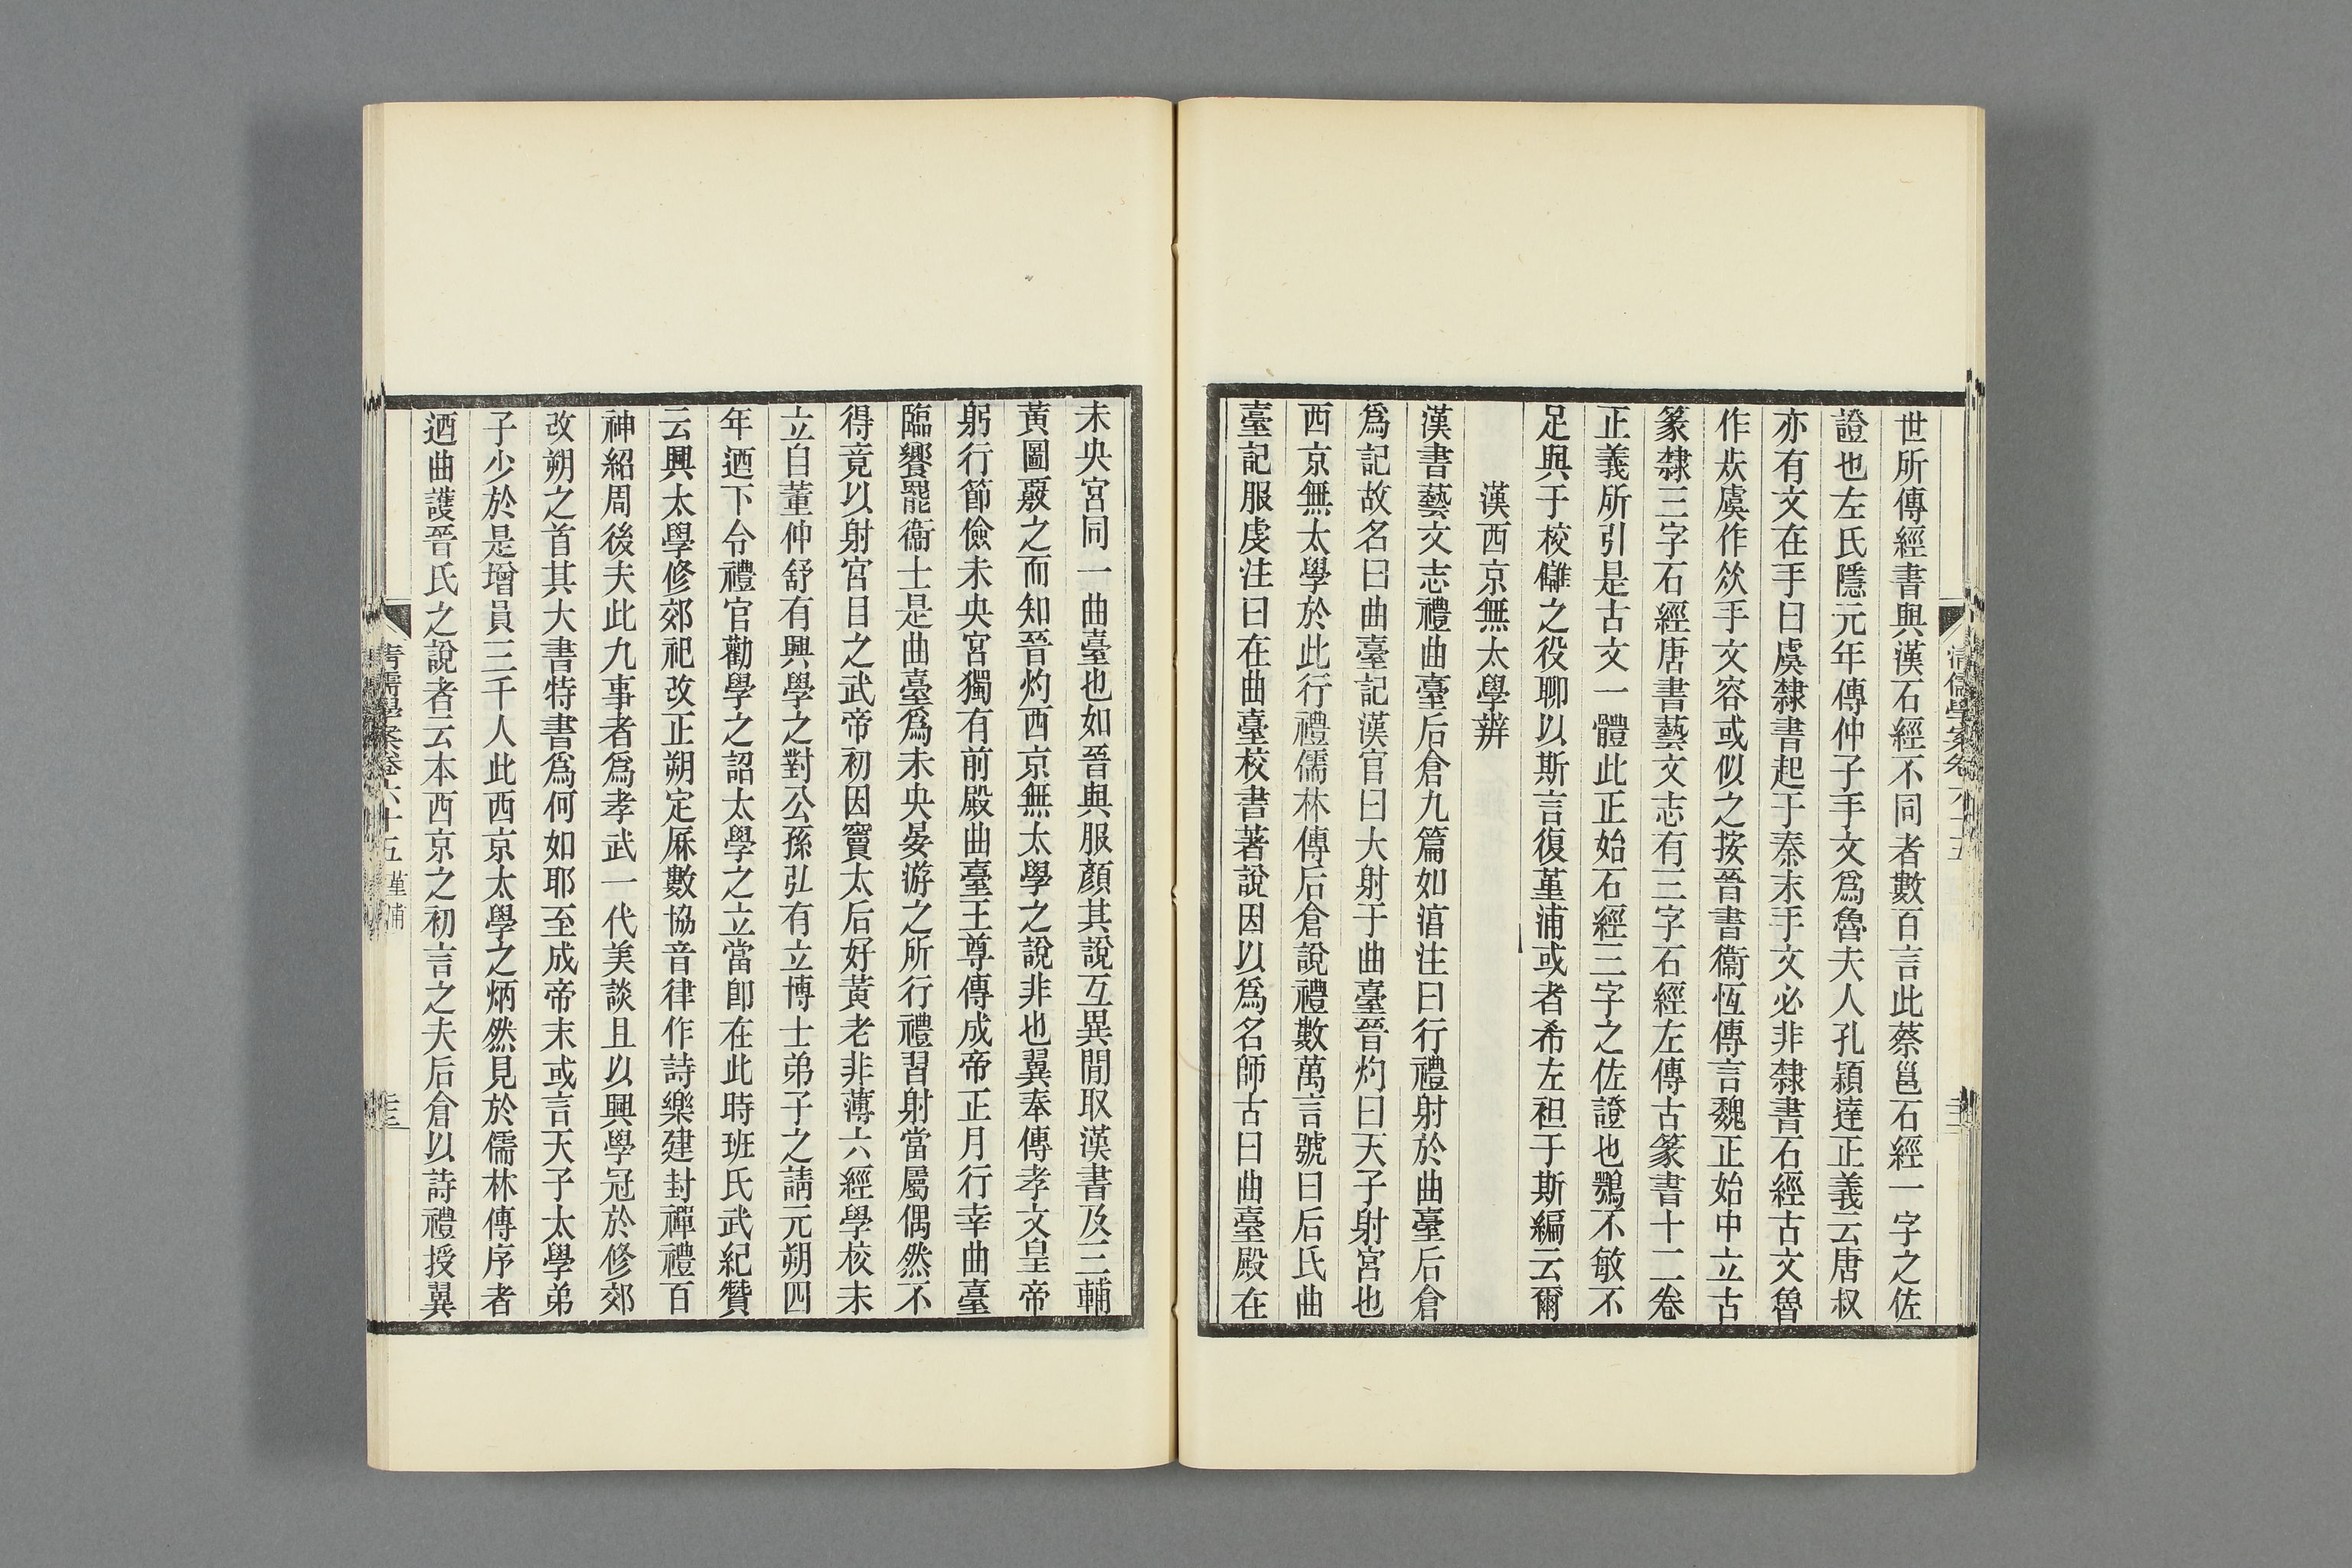 世所傳經書與漢石經不同者數百言此蔡邕石經一字之佐
證也左氏隱元年傳仲子手文爲魯夫人孔穎達正義云唐叔
亦有文在手曰虞隸書起于秦末手文必非隸書石經古文魯
作㞥虞作㳺手文容或似之按晉書衞恆傳言魏正始中立古
篆隸三字石經唐書藝文志有三字石經左傳古篆書十二卷
正義所引是古文一體此正始石經三字之佐證也鶚不敏不
足與于校讎之役聊以斯言復堇浦或者希左袒于斯編云爾
漢西京無太學辨
漢書藝文志禮曲臺后倉九篇如淳注曰行禮射於曲臺后倉
爲記故名曰曲臺記漢官曰大射于曲臺晉灼曰天子射宮也
西京無太學於此行禮儒林傳后倉說禮數萬言號曰后氏曲
臺記服虔注曰在曲臺校書著說因以爲名師古曰曲臺殿在
清儒學案卷六十五
未央宮同一曲臺也如晉與服顏其說互異閒取漢書及三輔
黃圖覈之而知晉灼西京無太學之說非也翼奉傳孝文皇帝
躬行節儉未央宮獨有前殿曲臺王尊傳成帝正月行幸曲臺
臨饗罷衞士是曲臺爲未央晏游之所行禮習射當屬偶然不
得竟以射宮目之武帝初因竇太后好黃老非薄六經學校未
立自董仲舒有興學之對公孫弘有立博士弟子之請元朔四
年迺下令禮官勸學之詔太學之立當卽在此時班氏武紀贊
云興太學修郊祀改正朔定厤數協音律作詩樂建封禪禮百
神紹周後夫此九事者爲孝武一代美談且以興學冠於修郊
改朔之首其大書特書爲何如耶至成帝末或言天子太學弟
子少於是增員三千人此西京太學之炳然見於儒林傳序者
迺曲護晉氏之說者云本西京之初言之夫后倉以詩禮授翼
清儒學案卷六十五 堇浦